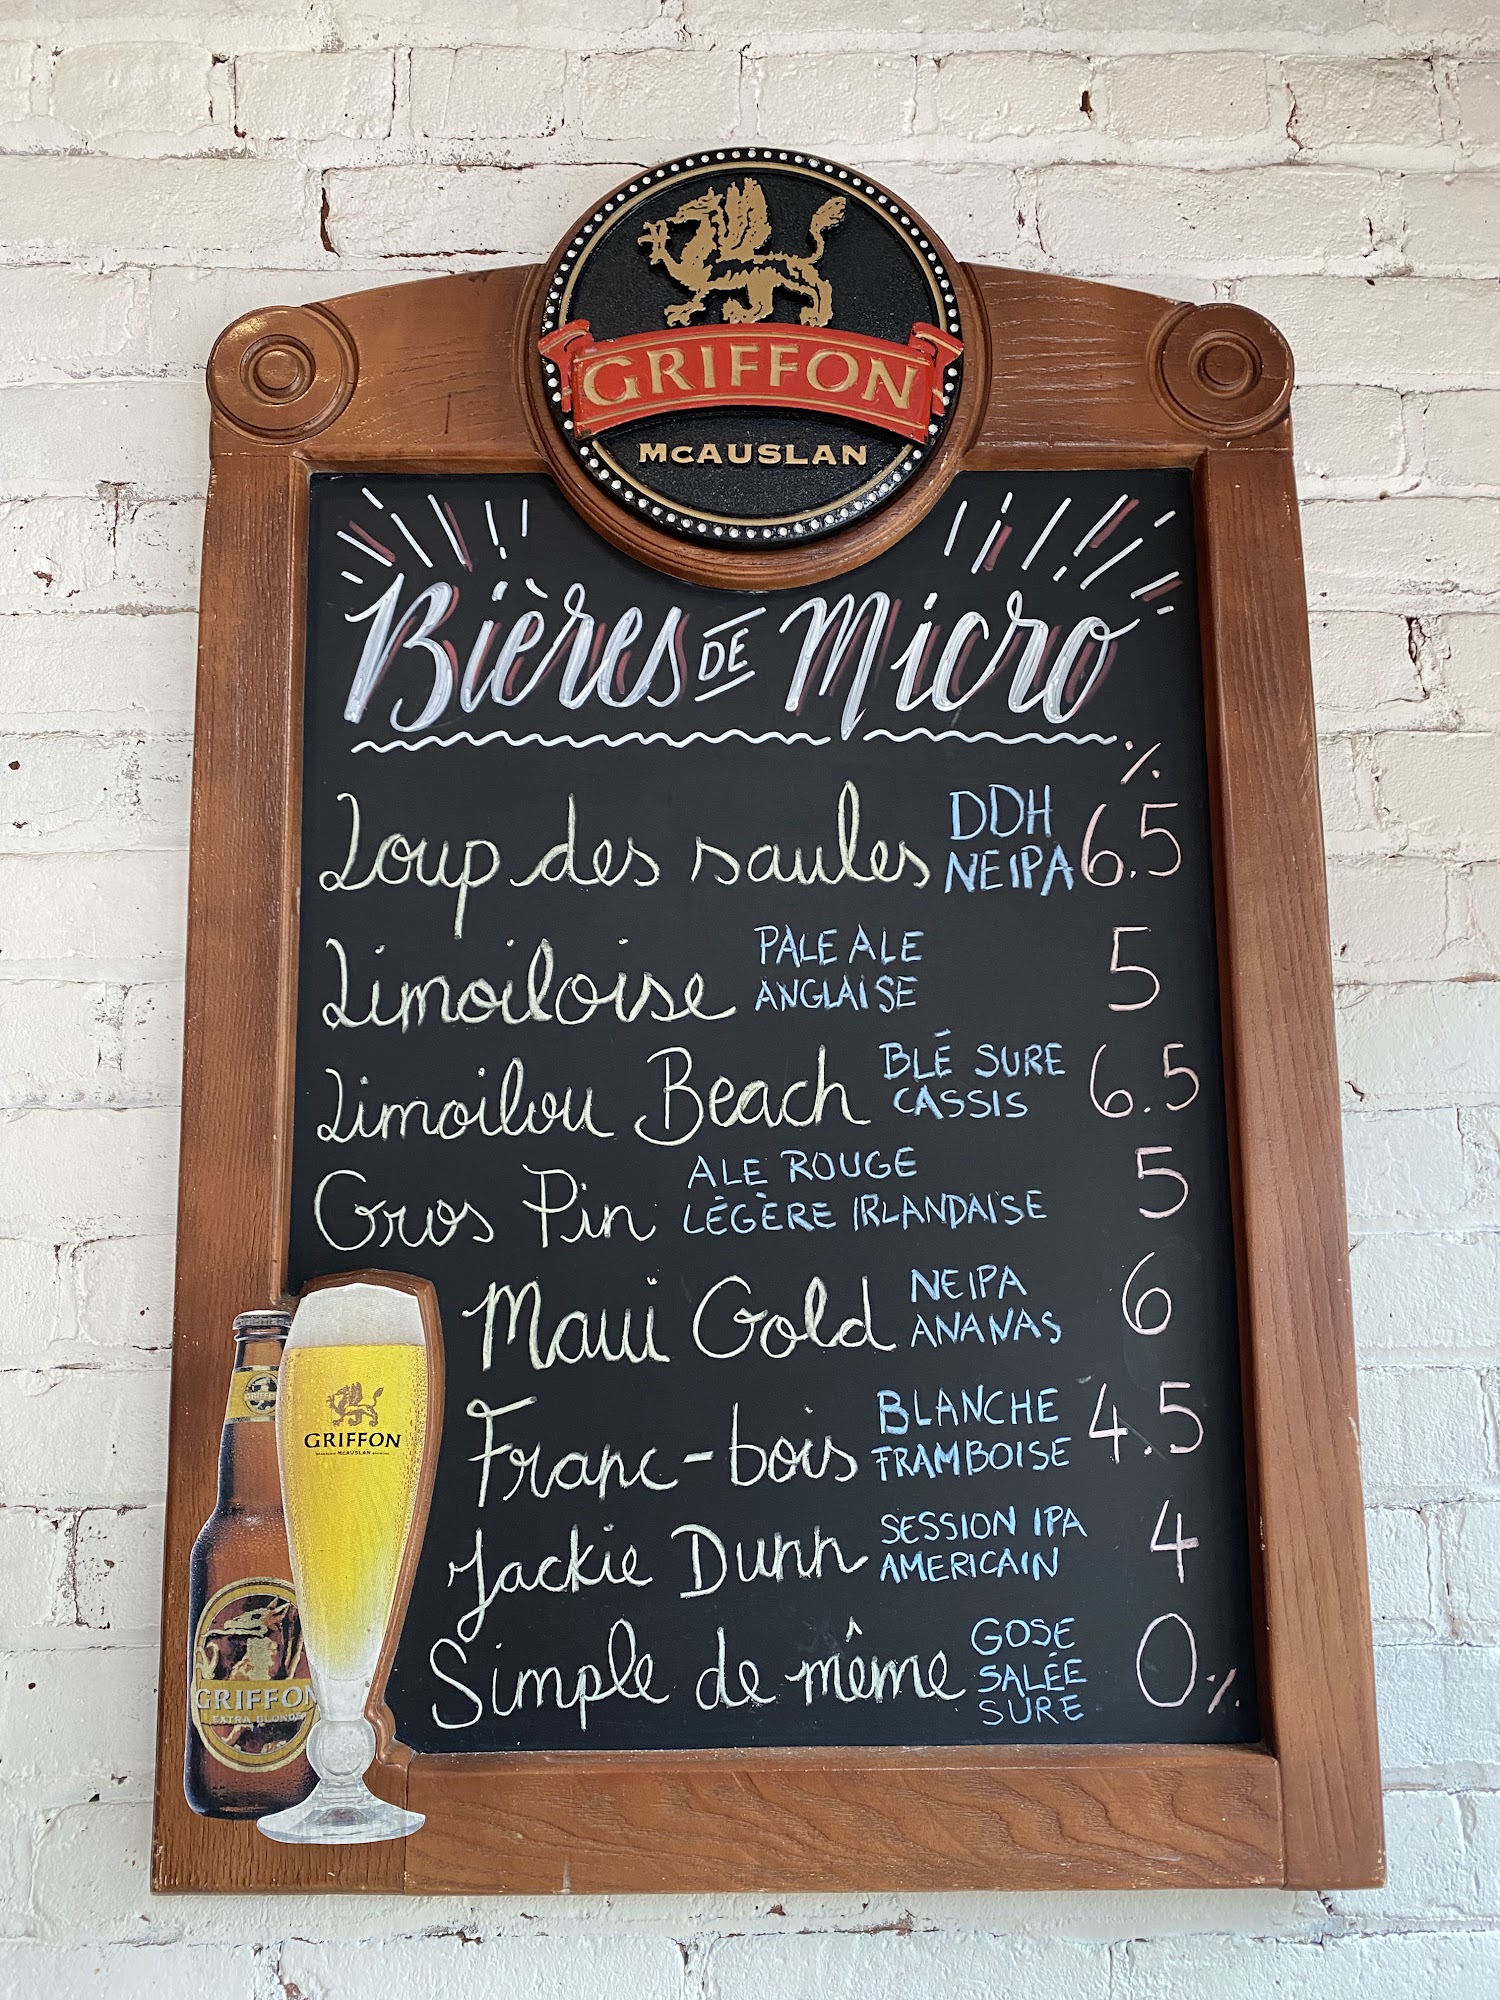 GRIFFON
McAUSLAN
Bières DE Micro
%
Loup des saules DDH NEIPA 6.5
Limoiloise PALE ALE ANGLAISE 5
Limoilou Beach BLÉ SURE CASSIS 6.5
Gros Pin ALE ROUGE LÉGÈRE IRLANDAISE 5
Maui Gold NEIPA ANANAS 6
Franc-bois BLANCHE FRAMBOISE 4.5
Jackie Dunn SESSION IPA AMERICAIN 4
Simple de même GOSE SALÉE SURE 0%
GRIFFON
GRIFFON
GRIFFON
EXTRA BLONDE